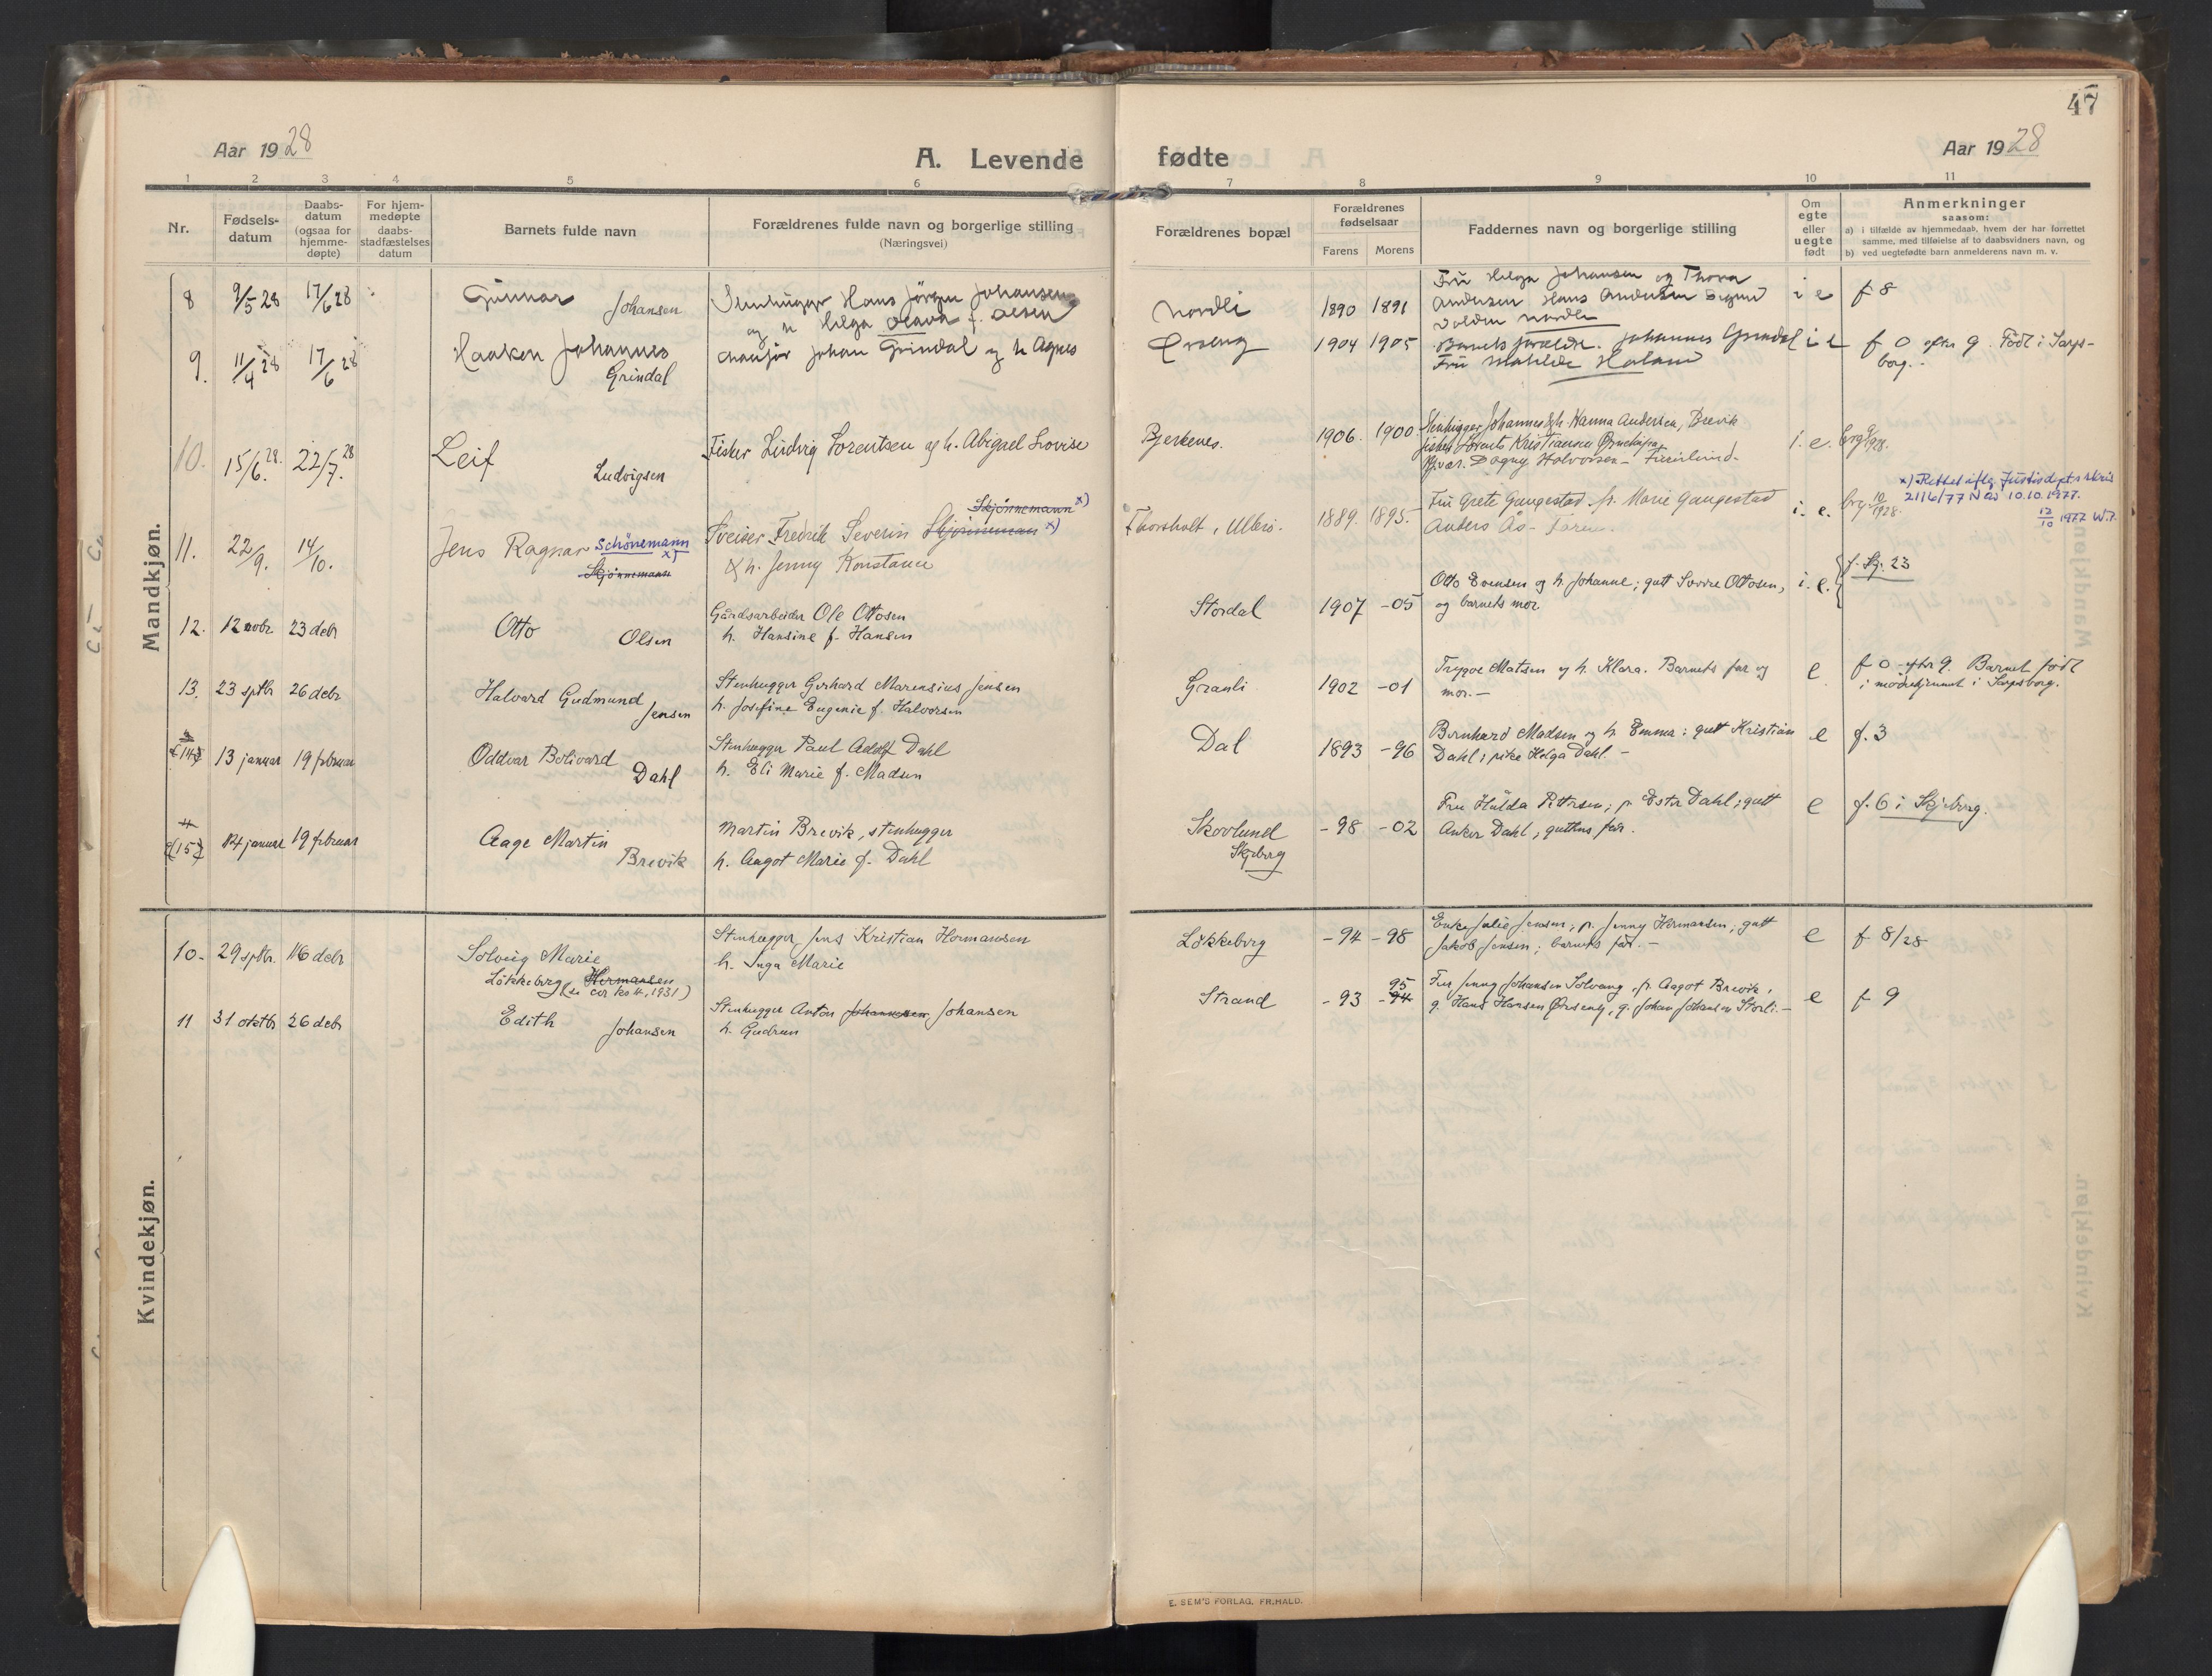 47
Aar 1928
A. Levende fødte
Aar 1928
1 2 3 4 5 6 7 8 9 10 11
Nr.
Fødsels-
datum
Daabs-
datum
(ogsaa for
hjemme-
døpte)
For hjem-
medøpte
daabs-
stadfæstelses
datum
Barnets fulde navn
Forældrenes fulde navn og borgerlige stilling
(Næringsvei)
Forældrenes bopæl
Forældrenes
fødselsaar
Farens Morens
Faddernes navn og borgerlige stilling
Om
egte
eller
uegte
født
Anmerkninger
saasom:
a) i tilfælde av hjemmedaab, hvem der har forrettet
samme, med tilføielse af to daabsvidners navn, og
b) ved uegtefødte barn anmelderens navn m. v.
Mandkjøn.
8 9/5 28 17/6 28
Gunnar
Johansen
Stenhugger Hans Jørgen Johansen
og h Helga Olava f. Olsen
Nordli
1890 1891
Fru Helga Johansen og Thora
Andersen Hans Andersen Sigurd
Nordli
i e
f 8
9. 11/4 28 17/6 28
Haaken Johannes
Grindal
Chauffør Johan Grindal og h Agnes
1904 1905
Barnets forældre. Johannes Grindal
Fru Mathilde
i e
f 0 efter 9. Født i Sarps-
borg.
10. 15/6. 28. 22/7. 28
Leif
Ludvigsen
Fisker Ludvig Lorentsen og h. Abigael Lovise
Bjerkenes.
1906. 1900.
Stenhugger Johannes & h. Hanna Andersen, Brevik
fisker Lorents Kristiansen
Dagny Halvorsen - Furulund.
i. e.
11. 22/9. 14/10.
Jens Ragnar Schönemann
x)
Skjønnemann
Skjønnemann x)
Sveiser Fredrik Severin Skjønneman x)
& h. Jenny Konstance
Thorsholt, Ullerø.
1889. 1895.
Fru Grete Gaugestad. fr. Marie Gaugestad
Anders Ås - faren.
i. e.
x) Rettet iflg Justisdpts skriv
2116/77 N ås 10.10.1977.
12/10 1977 W.J.
12. 12 novbr 23 debr
Otto
Olsen
Gaardsarbeider Ole Ottosen
h. Hansine f. Hansen
Stordal
1907 -05
Otto Evensen og h. Johanne; gutt Sverre Ottosen,
og barnets mor.
i. e.
f. Skj. 23
13. 23 sptbr 26 debr
Halvard Gudmund
Jensen
Stenhugger Gerhard Marensius Jensen
h. Josefine Eugenie f. Halvorsen
Granli
1902 -01
Trygve Matsen og h. Klara. Barnets far og
mor. -
e
f 0 efter 9. Barnet født
i mødrehjemmet i Sarpsborg.
3
(14) 13 januar 19 februar
Oddvar Bolivard
Dahl
Stenhugger Paul Adolf Dahl
h. Eli Marie f. Madsen
Dal
1893 -96
Bernhard Madsen og h. Emma; gutt Kristian
Dahl; pike Helga Dahl. -
e
f. 3
4
(15) 14 januar 19 februar
Aage Martin
Brevik
Martin Brevik, stenhugger
h. Aagot Marie f. Dahl
Skovlund
Skjeberg
-98 -02
Fru Hulda Pettersen; p. Ester Dahl; gutt
Anker Dahl, guttens far.
e
f. 6 i Skjeberg.
Kvindekjøn.
10. 29 sptbr. 16 debr
Solveig Marie
Løkkeberg Hermansen
(se cir ks 4, 1931)
Stenhugger Jens Kristian Hermansen
h. Inga Marie
Løkkeberg
-94 -98
Enke Julie Jensen; p. Jenny Hermansen; gutt
Jakob Jensen; barnets far. -
e
f 8/28
11 31 oktbr 26 debr
Edith
Johansen
Stenhugger Anton Johannesen Johansen
h. Gudrun
Strand
95
-93 -94
Fru Jenny Johansen Solvang, p. Aagot Brevik,
g. Hans Hansen Ørseng, g. Johan Johansen Storli. -
e
f 9
E. SEM'S FORLAG. FR.HALD.